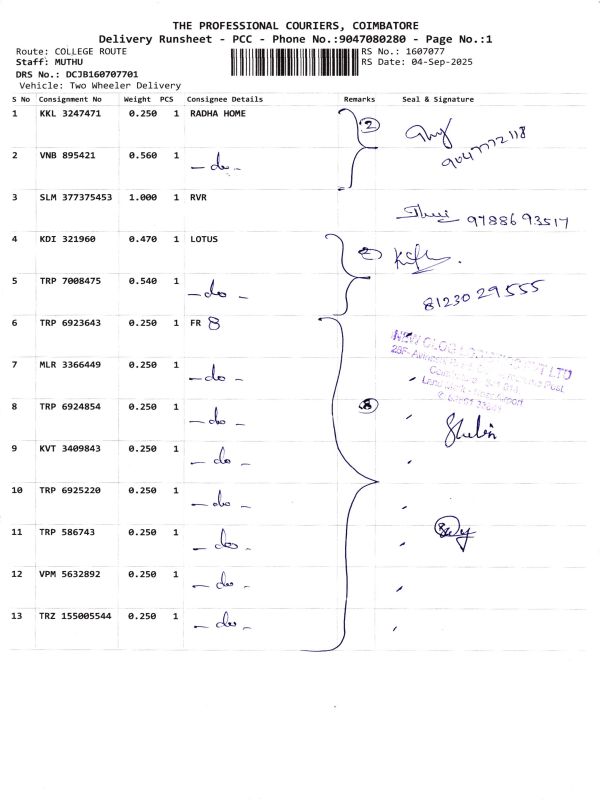 THE PROFESSIONAL COURIERS, COIMBATORE
Delivery Runsheet - PCC - Phone No.:9047080280 - Page No.:1
Route: COLLEGE ROUTE RS No.: 1607077
Staff: MUTHU RS Date: 04-Sep-2025
DRS No.: DCJB160707701
Vehicle: Two Wheeler Delivery
S No Consignment No Weight PCS Consignee Details Remarks Seal & Signature
1 KKL 3247471 0.250 1 RADHA HOME 2
9047772118
2 VNB 895421 0.560 1 - do -
3 SLM 377375453 1.000 1 RVR
9788693517
4 KDI 321960 0.470 1 LOTUS 2
5 TRP 7008475 0.540 1 - do - 8123029555
6 TRP 6923643 0.250 1 FR 8
NEW GLOB PVT LTD
7 MLR 3366449 0.250 1 - do -
8 TRP 6924854 0.250 1 - do - 8
9 KVT 3409843 0.250 1 - do -
10 TRP 6925220 0.250 1 - do -
11 TRP 586743 0.250 1 - do -
12 VPM 5632892 0.250 1 - do -
13 TRZ 155005544 0.250 1 - do -